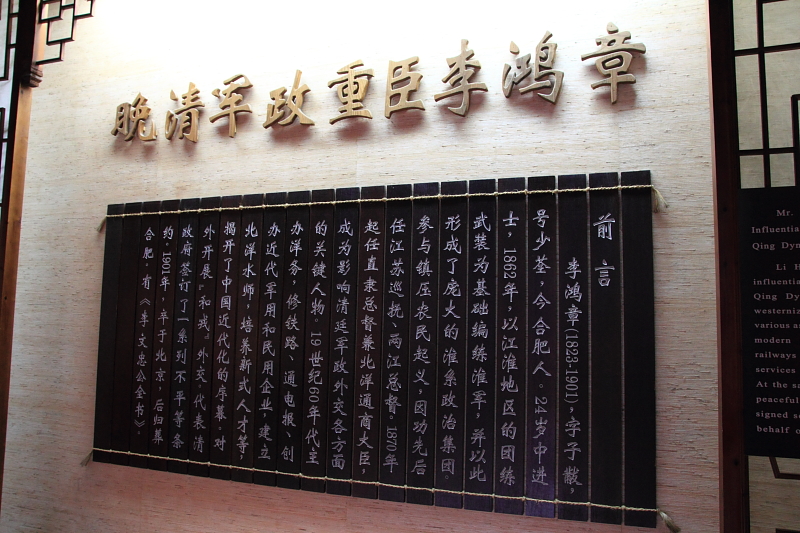 晚清军政重臣李鸿章
前言
李鸿章(1823-1901),字子黻,
号少荃,今合肥人。24岁中进
士,1862年,以江淮地区的团练
武装为基础编练淮军,并以此
形成了庞大的淮系政治集团。
参与镇压农民起义,因功先后
任江苏巡抚、两江总督,1870年
起任直隶总督兼北洋通商大臣,
成为影响清廷军政外交各方面
的关键人物。19世纪60年代主
办洋务,修铁路、通电报、创
办近代军用和民用企业,建立
北洋水师,培养新式人才等,
揭开了中国近代化的序幕。对
外开展"和戎"外交,代表清
政府签订了一系列不平等条
约。1901年,卒于北京,后归葬
合肥。有《李文忠公全书》。
Mr.
Influentia
Qing Dyn
Li H
influential
Qing Dy
westerniz
various a
modern
railways
services
At the sa
peaceful
signed s
behalf o